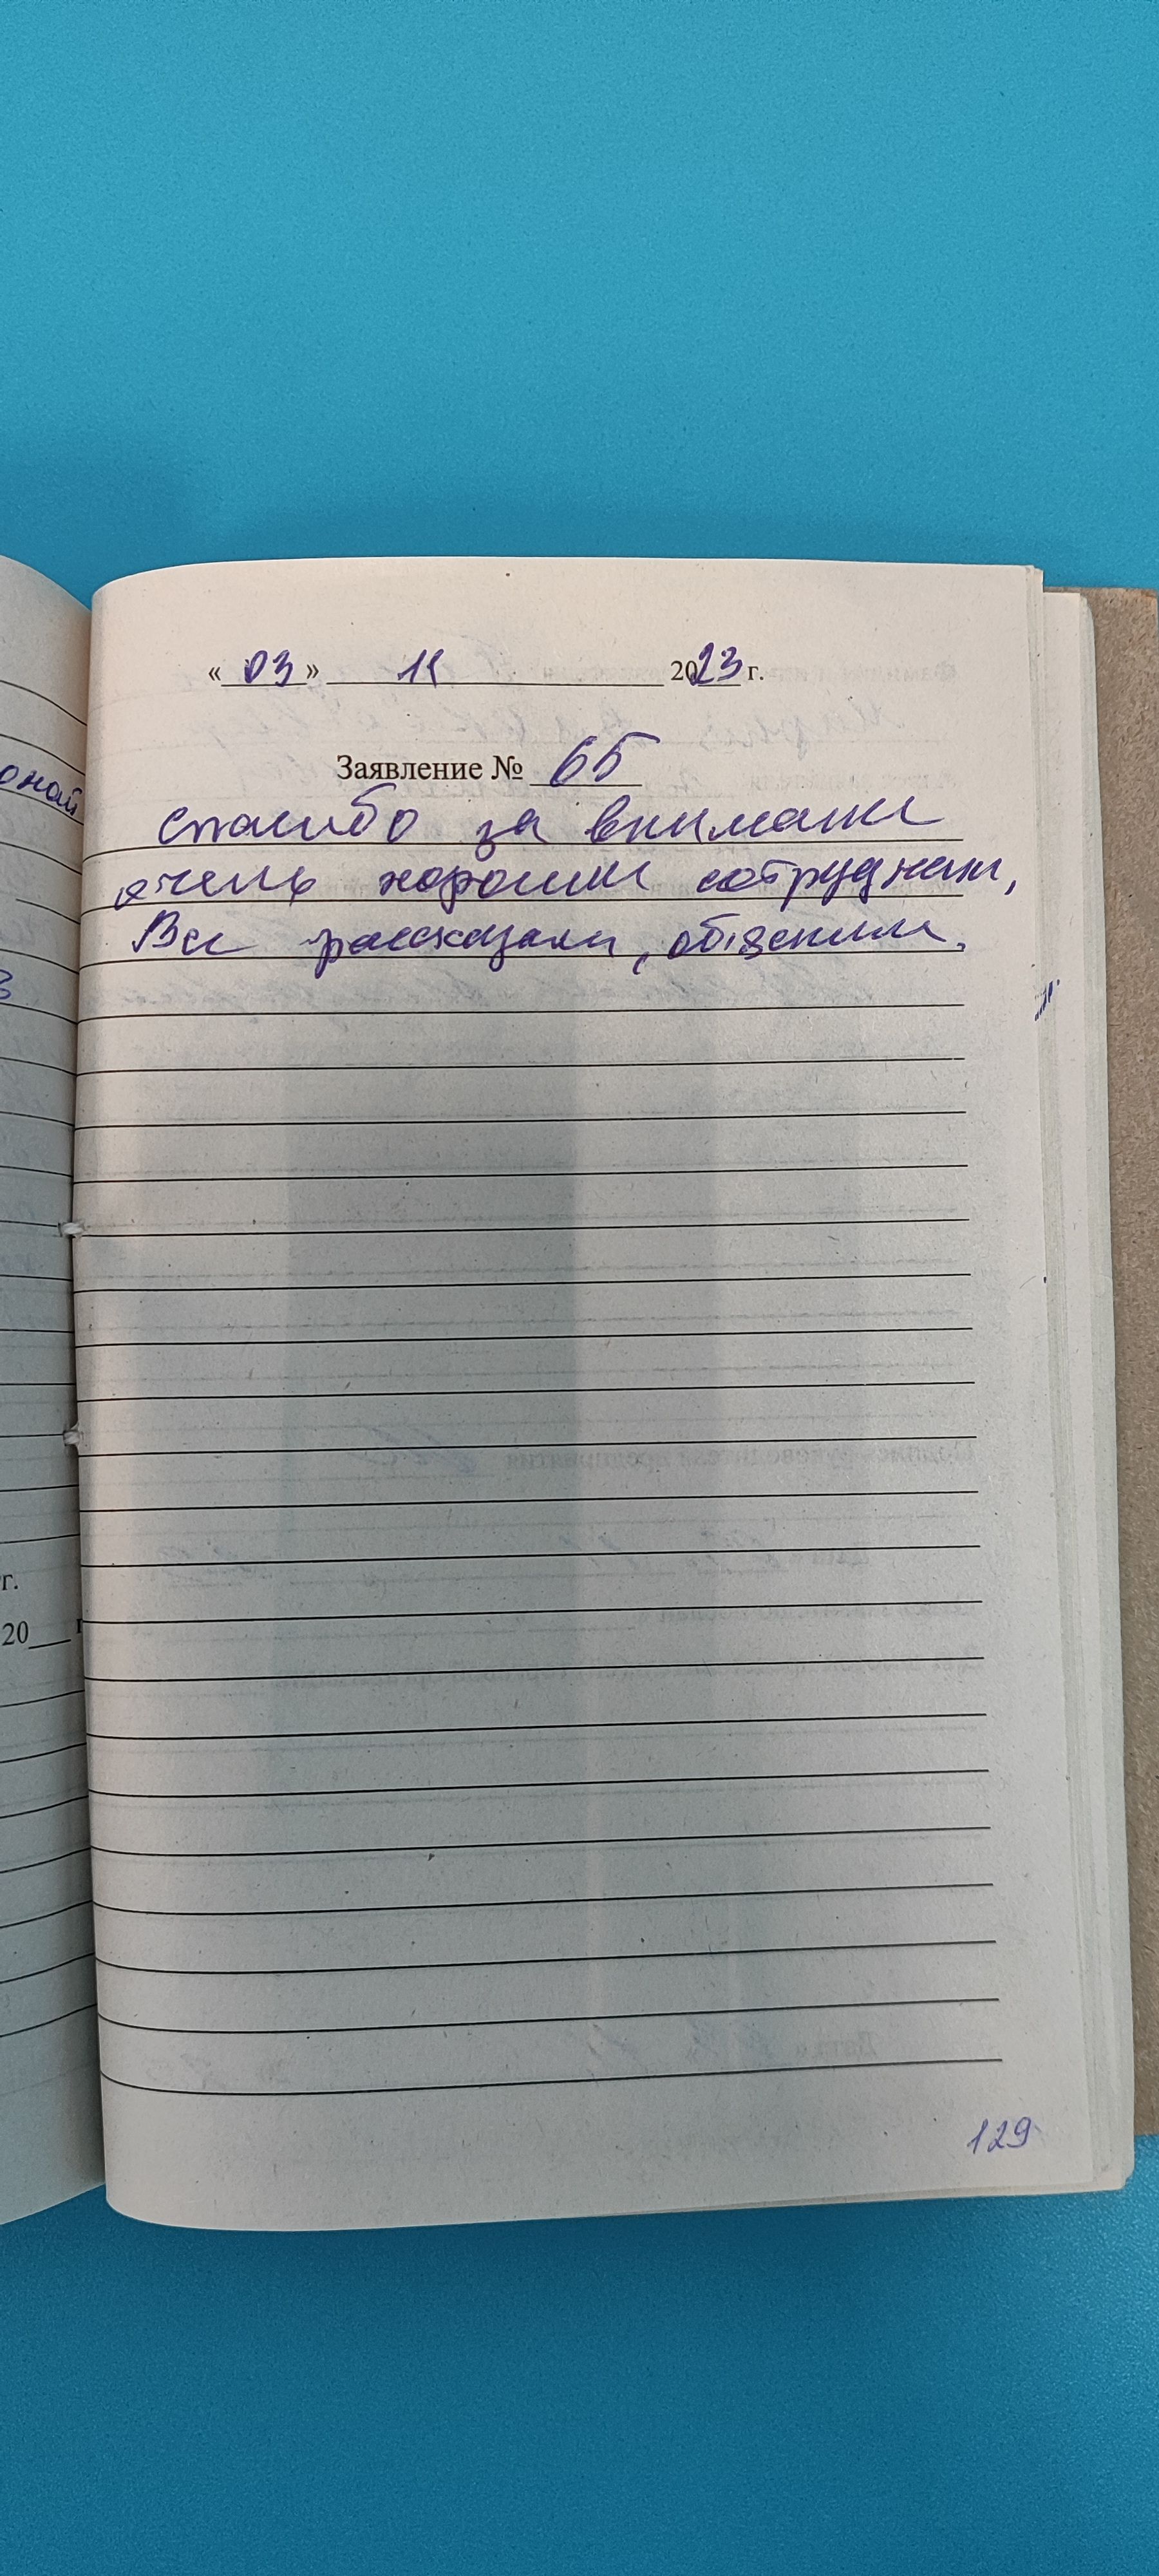 «03» 11 2023 г.
Заявление № 65
спасибо за внимание
очень хорошие сотрудники,
Все рассказали, объяснили.
129
онай
г.
20